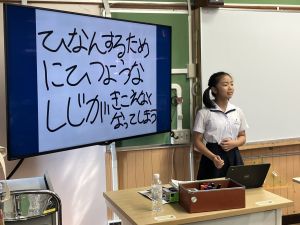 ひなんするため
にひつような
しじがきこえなく
なってしまう